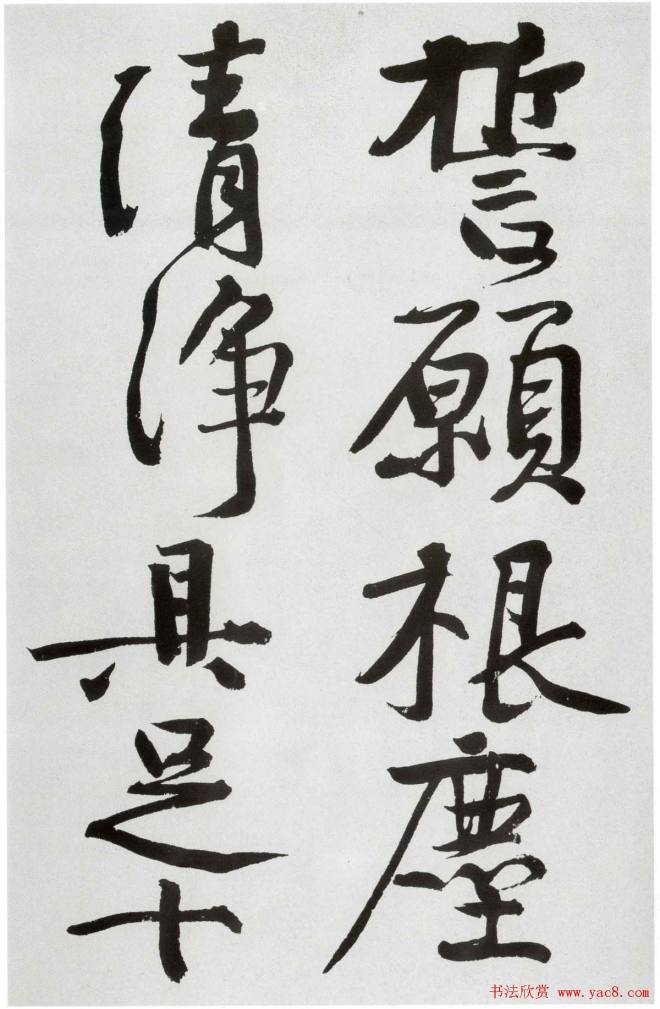 誓願根塵
清浄具足十
书法欣赏 www.yac8.com